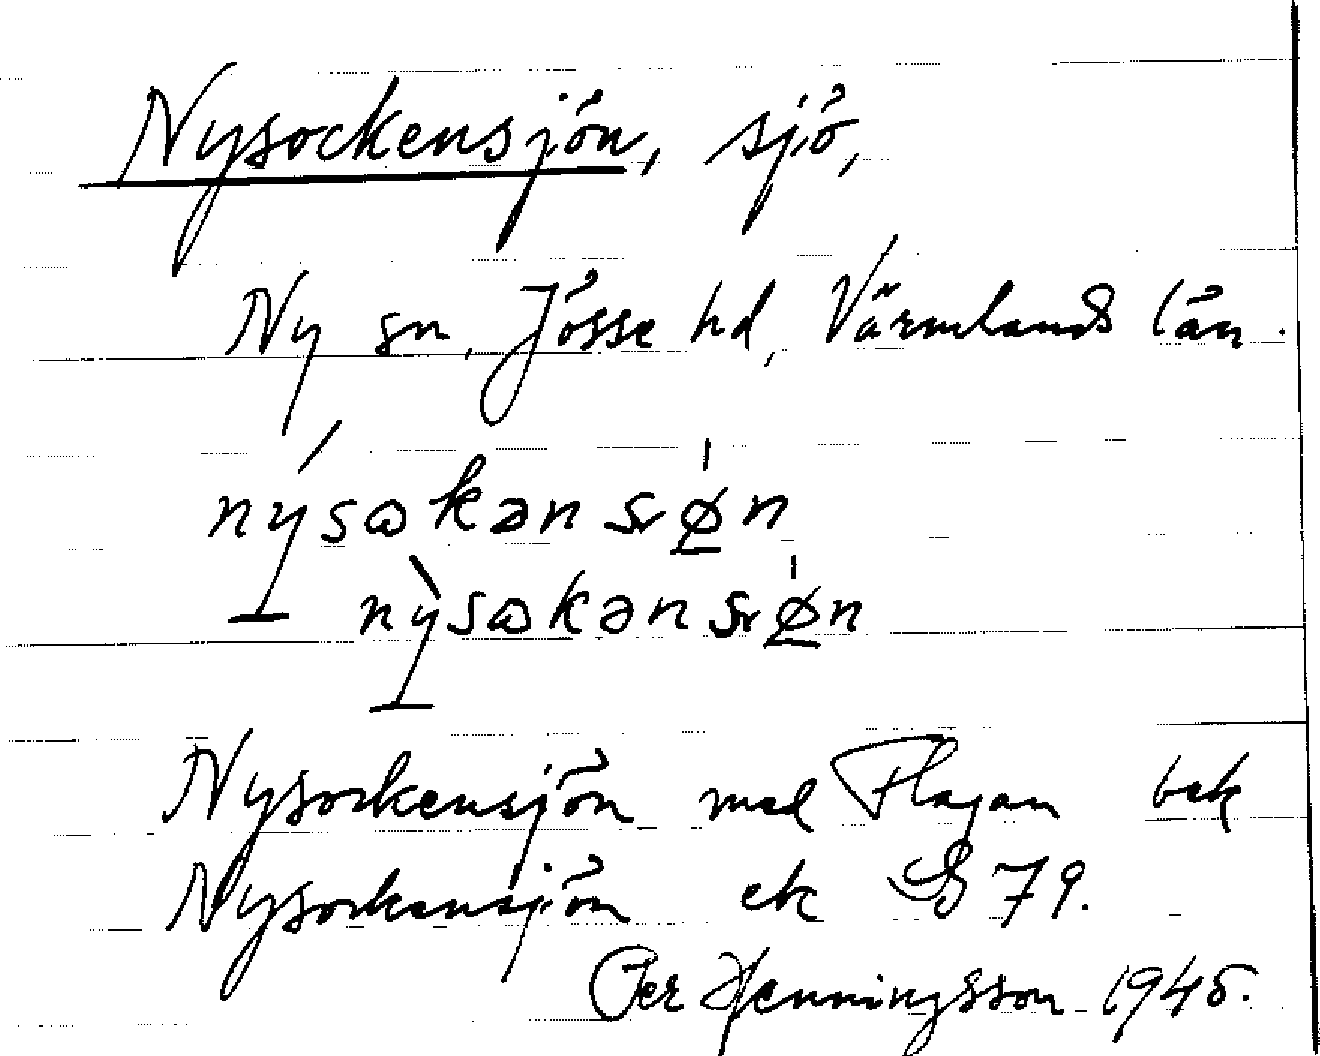 Nysockensjön, sjö,
Ny sn, Jösse hd, Värmlands län.
nýsɷkən sɼø̲n
nỳsɷkən sɼø̲n
Nysockensjön med Flagan bek
Nysockensjön ek S 79.
Per Henningsson 1945.